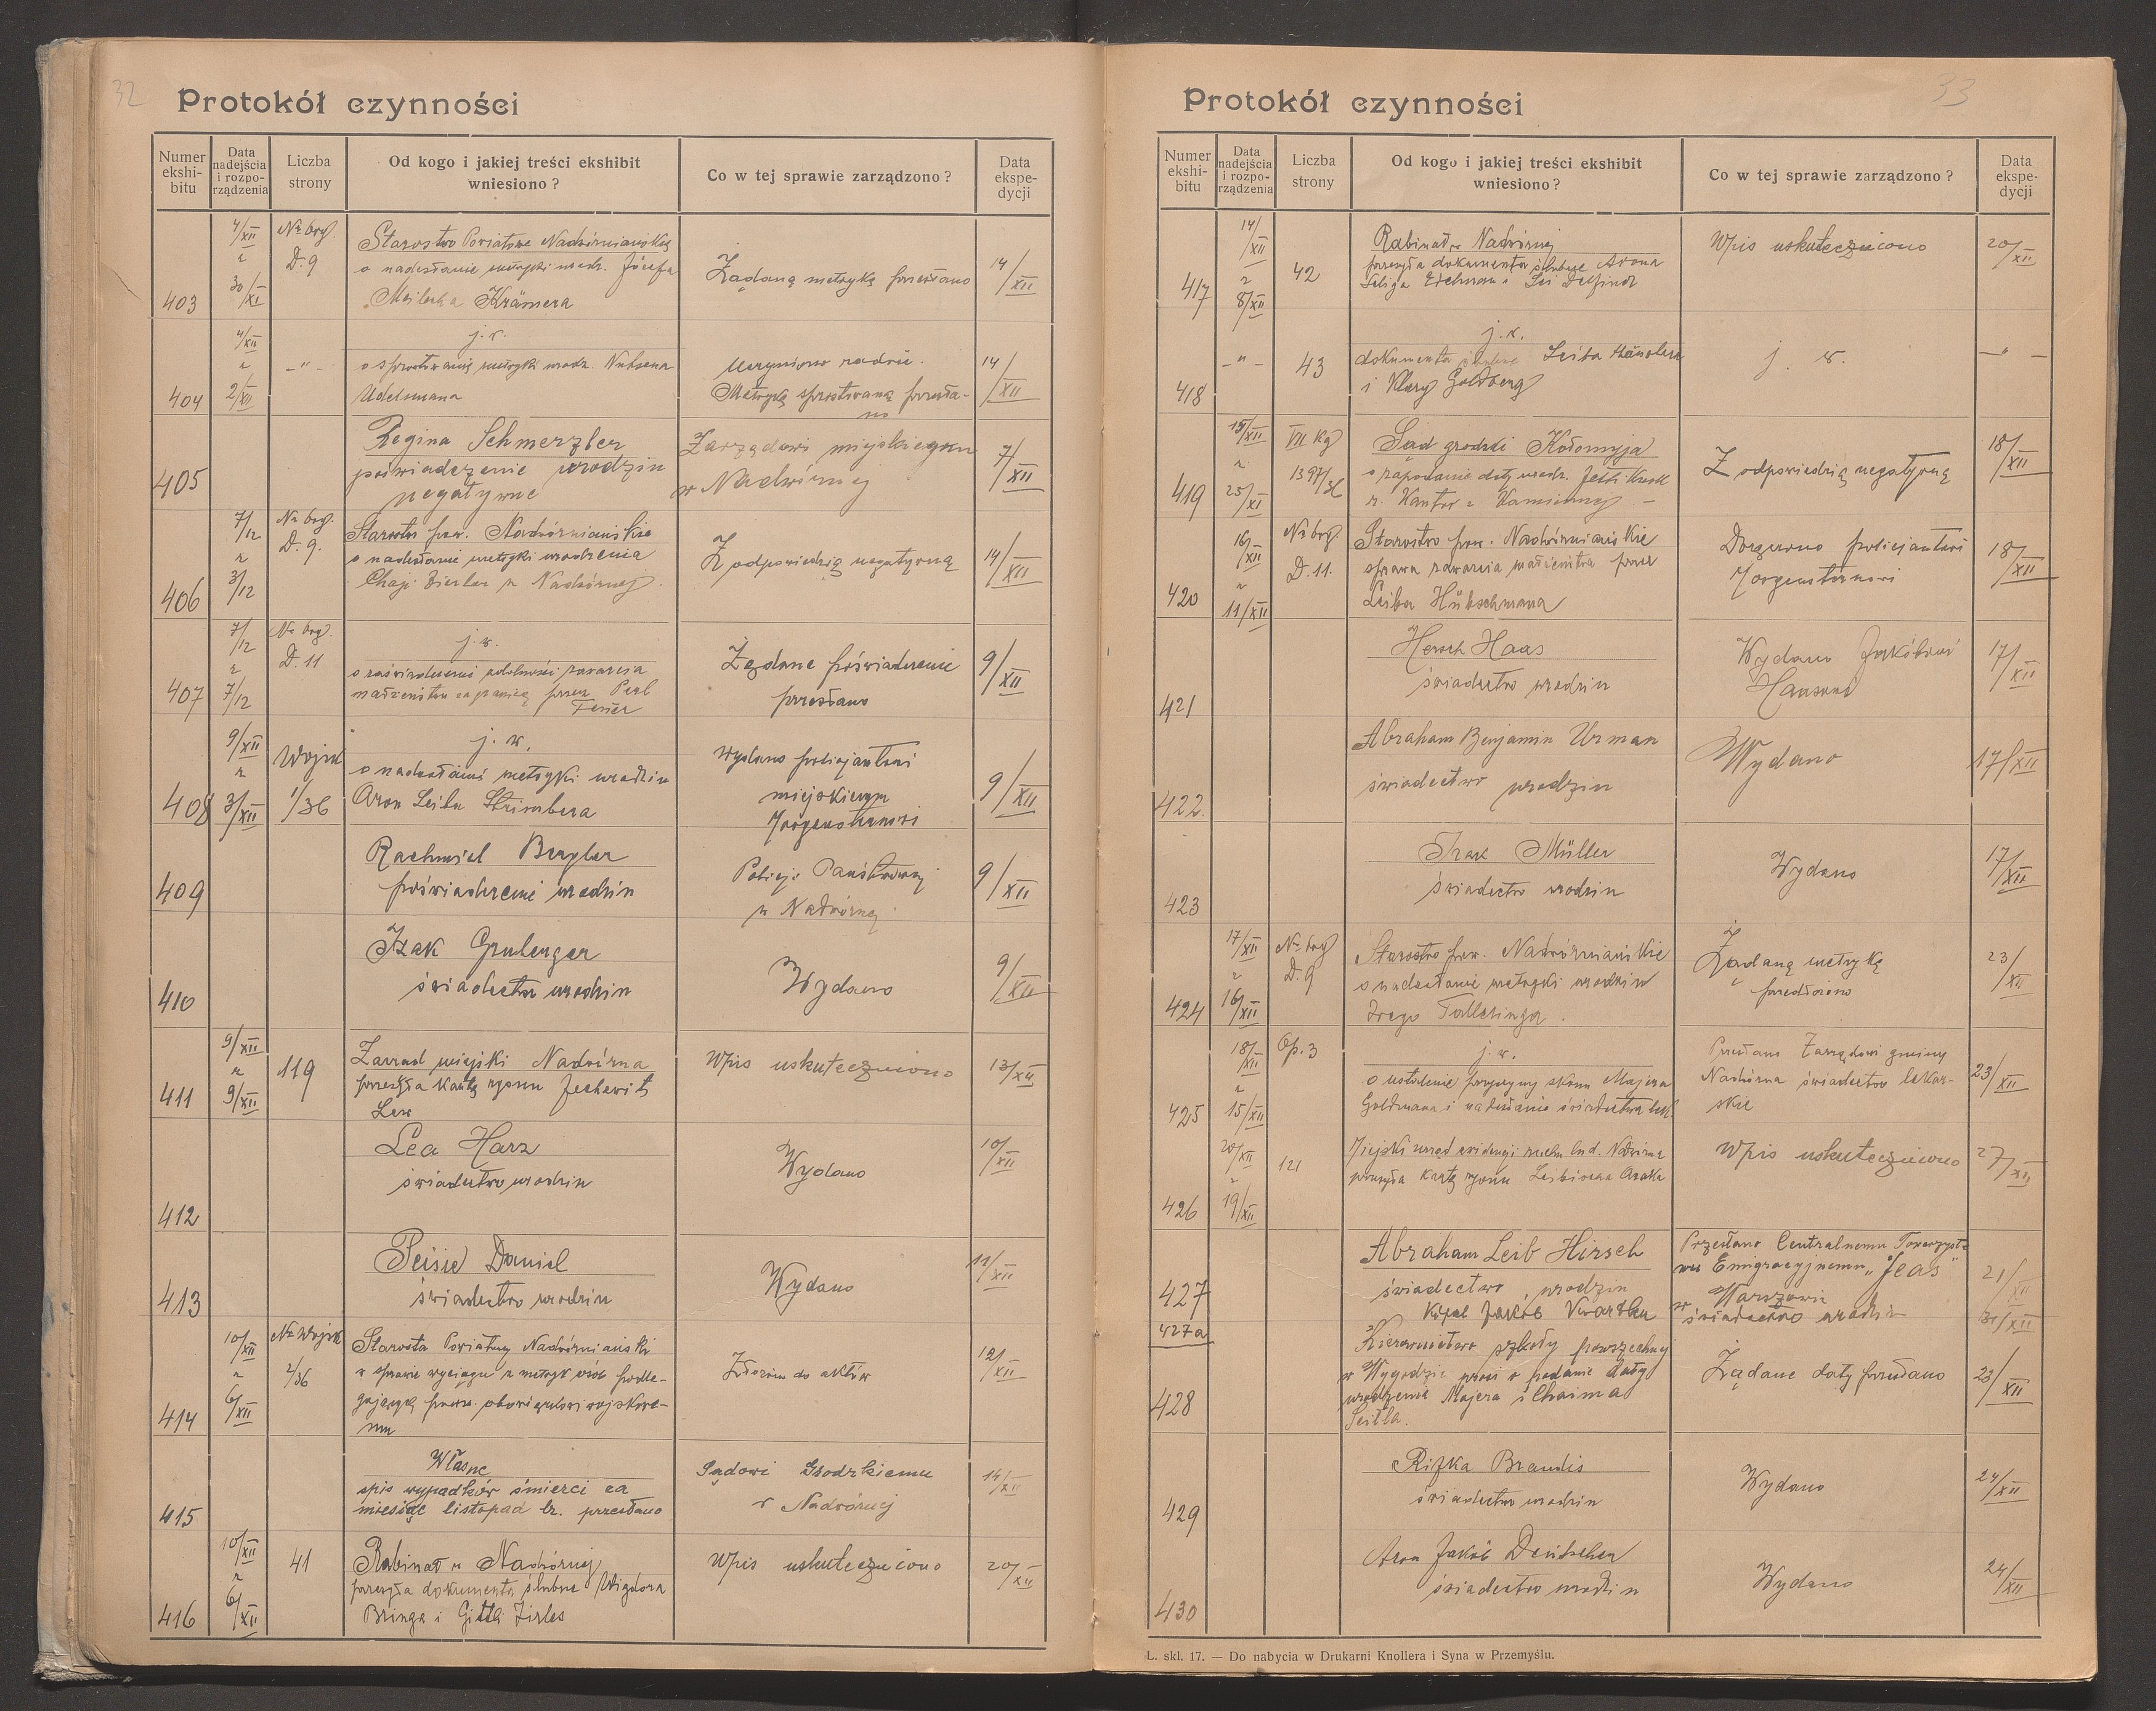 32
Protokół czynności
Numer ekshi-bitu
Data nadejścia i rozpo-rządzenia
Liczba strony
Od kogo i jakiej treści ekshibit wniesiono?
Co w tej sprawie zarządzono?
Data ekspe-dycji
403
4/XII z 30/XI
Na org. D. 9
Starostwo Powiatowe Nadwórniańskie
o nadesłanie metryki urodz. Józefa
Majlecha Krämera
Żądaną metrykę przesłano
14/XII
404
4/XII z 2/XII
– " –
j. w.
o sprostowanie metryki urodz. Nuksena
Udelsmana
Uczyniono zadość.
Metrykę sprostowaną przesła-
no
14/XII
405
Regina Schmerzler
poświadczenie urodzin
negatywne
Zarządowi miejskiemu
w Nadwórnej
7/XII
406
7/12 z 3/12
Na org. D. 9.
Starostwo pow. Nadwórniańskie
o nadesłanie metryki urodzenia
Chaji Zierler z Nadwórnej.
Z odpowiedzią negatywną
14/XII
407
7/12 z 7/12
Na org. D. 11
j. w.
o zaświadczenie zdolności zawarcia
małżeństwa zagranicą przez Perl
Żądane poświadczenie
przesłano
9/XII
408
9/XII z 3/XII
Wojsk 1/36
j. w.
o nadesłanie metryki urodzin
Aron Leiba Strimbera
Wydano policjantowi
miejskiemu
Morgensternowi
9/XII
409
Rachmiel Bergler
poświadczenie urodzin
Policji Państwowej
w Nadwórnej
9/XII
410
Izak Grulenger
świadectwo urodzin
Wydano
9/XII
411
9/XII z 9/XII
119
Zarząd miejski Nadwórna
przesyła kartę zgonu Jechewit
Lew
Wpis uskuteczniono
13/XII
412
Lea Harz
świadectwo urodzin
Wydano
10/XII
413
Peisie Daniel
świadectwo urodzin
Wydano
11/XII
414
10/XII z 6/XII
Na Wojsk 2/36
Starosta Powiatowy Nadwórniański
w sprawie wyciągu z metryk osób podle-
gających powsz. obowiązkowi wojskowe-
mu
Złożono do aktów
12/XII
415
Własne
spis wypadków śmierci za
miesiąc listopad br. przesłano
Sądowi Grodzkiemu
w Nadwórnej
14/XII
416
10/XII z 6/XII
41
Rabinat w Nadwórnej
przesyła dokumenta ślubne Wigdora
Bringa i Gitli Zirles
Wpis uskuteczniono
20/XII
33
Protokół czynności
Numer ekshi-bitu
Data nadejścia i rozpo-rządzenia
Liczba strony
Od kogo i jakiej treści ekshibit wniesiono?
Co w tej sprawie zarządzono?
Data ekspe-dycji
417
14/XII z 8/XII
42
Rabinat w Nadwórnej
przesyła dokumenta ślubne Arona
Seliga Eichmana i Lei Delfiner
Wpis uskuteczniono
20/XII
418
– " –
43
j. w.
dokumenta ślubne Leiba Händlera
i Klary Goldberg
j. w.
– " –
419
15/XII z 25/XI
VII Kg 1397/36
Sąd grodzki Kołomyja
o zapodanie daty urodz.
z Kamiennej –
Z odpowiedzią negatywną
18/XII
420
16/XII z 11/XII
Na org. D. 11.
Starostwo pow. Nadwórniańskie
sprawa zawarcia małżeństwa przez
Leiba Hübschmana
Doręczono policjantowi
Morgensternowi
18/XII
421
Hersch Haas
świadectwo urodzin
Wydano Jakóbowi
Haasowi
17/XII
422
Abraham Benjamin Urman
świadectwo urodzin
Wydano
17/XII
423
Izak Müller
świadectwo urodzin
Wydano
17/XII
424
17/XII z 16/XII
Na org D. 9
Starostwo pow. Nadwórniańskie
o nadesłanie metryki urodzin
Srego Tallesinga.
Żądaną metrykę
przedłożono
23/XII
425
18/XII z 15/XII
Op. 3
j. w.
o ustalenie przyczyny skonu Majera
Goldmana i nadesłanie świadectwa lek.
Przesłano Zarządowi gminy
Nadwórna świadectwo lekar-
skie
23/XII
426
20/XII z 19/XII
121
Miejski urząd ewidencji ruchu lud. Nadwórna
przesyła kartę zgonu Leibisona Araka
Wpis uskuteczniono
27/XII
427
Abraham Leib Hirsch
świadectwo urodzin
Przesłano Centralnemu Towarzyst-
wu Emigracyjnemu „Jeas"
w Warszawie
21/XII
427a
Kopel Jakób Kwartler
świadectwo urodzin
31/XII
428
Kierownictwo szkoły powszechnej
w Wygodzie prosi o podanie daty
urodzenia Majera i Chaima
Seitla.
Żądane daty przesłano
23/XII
429
Rifka Brandis
świadectwo urodzin
Wydano
24/XII
430
Aron Jakób Deutscher
świadectwo urodzin
Wydano
24/XII
L. skl. 17. — Do nabycia w Drukarni Knollera i Syna w Przemyślu.